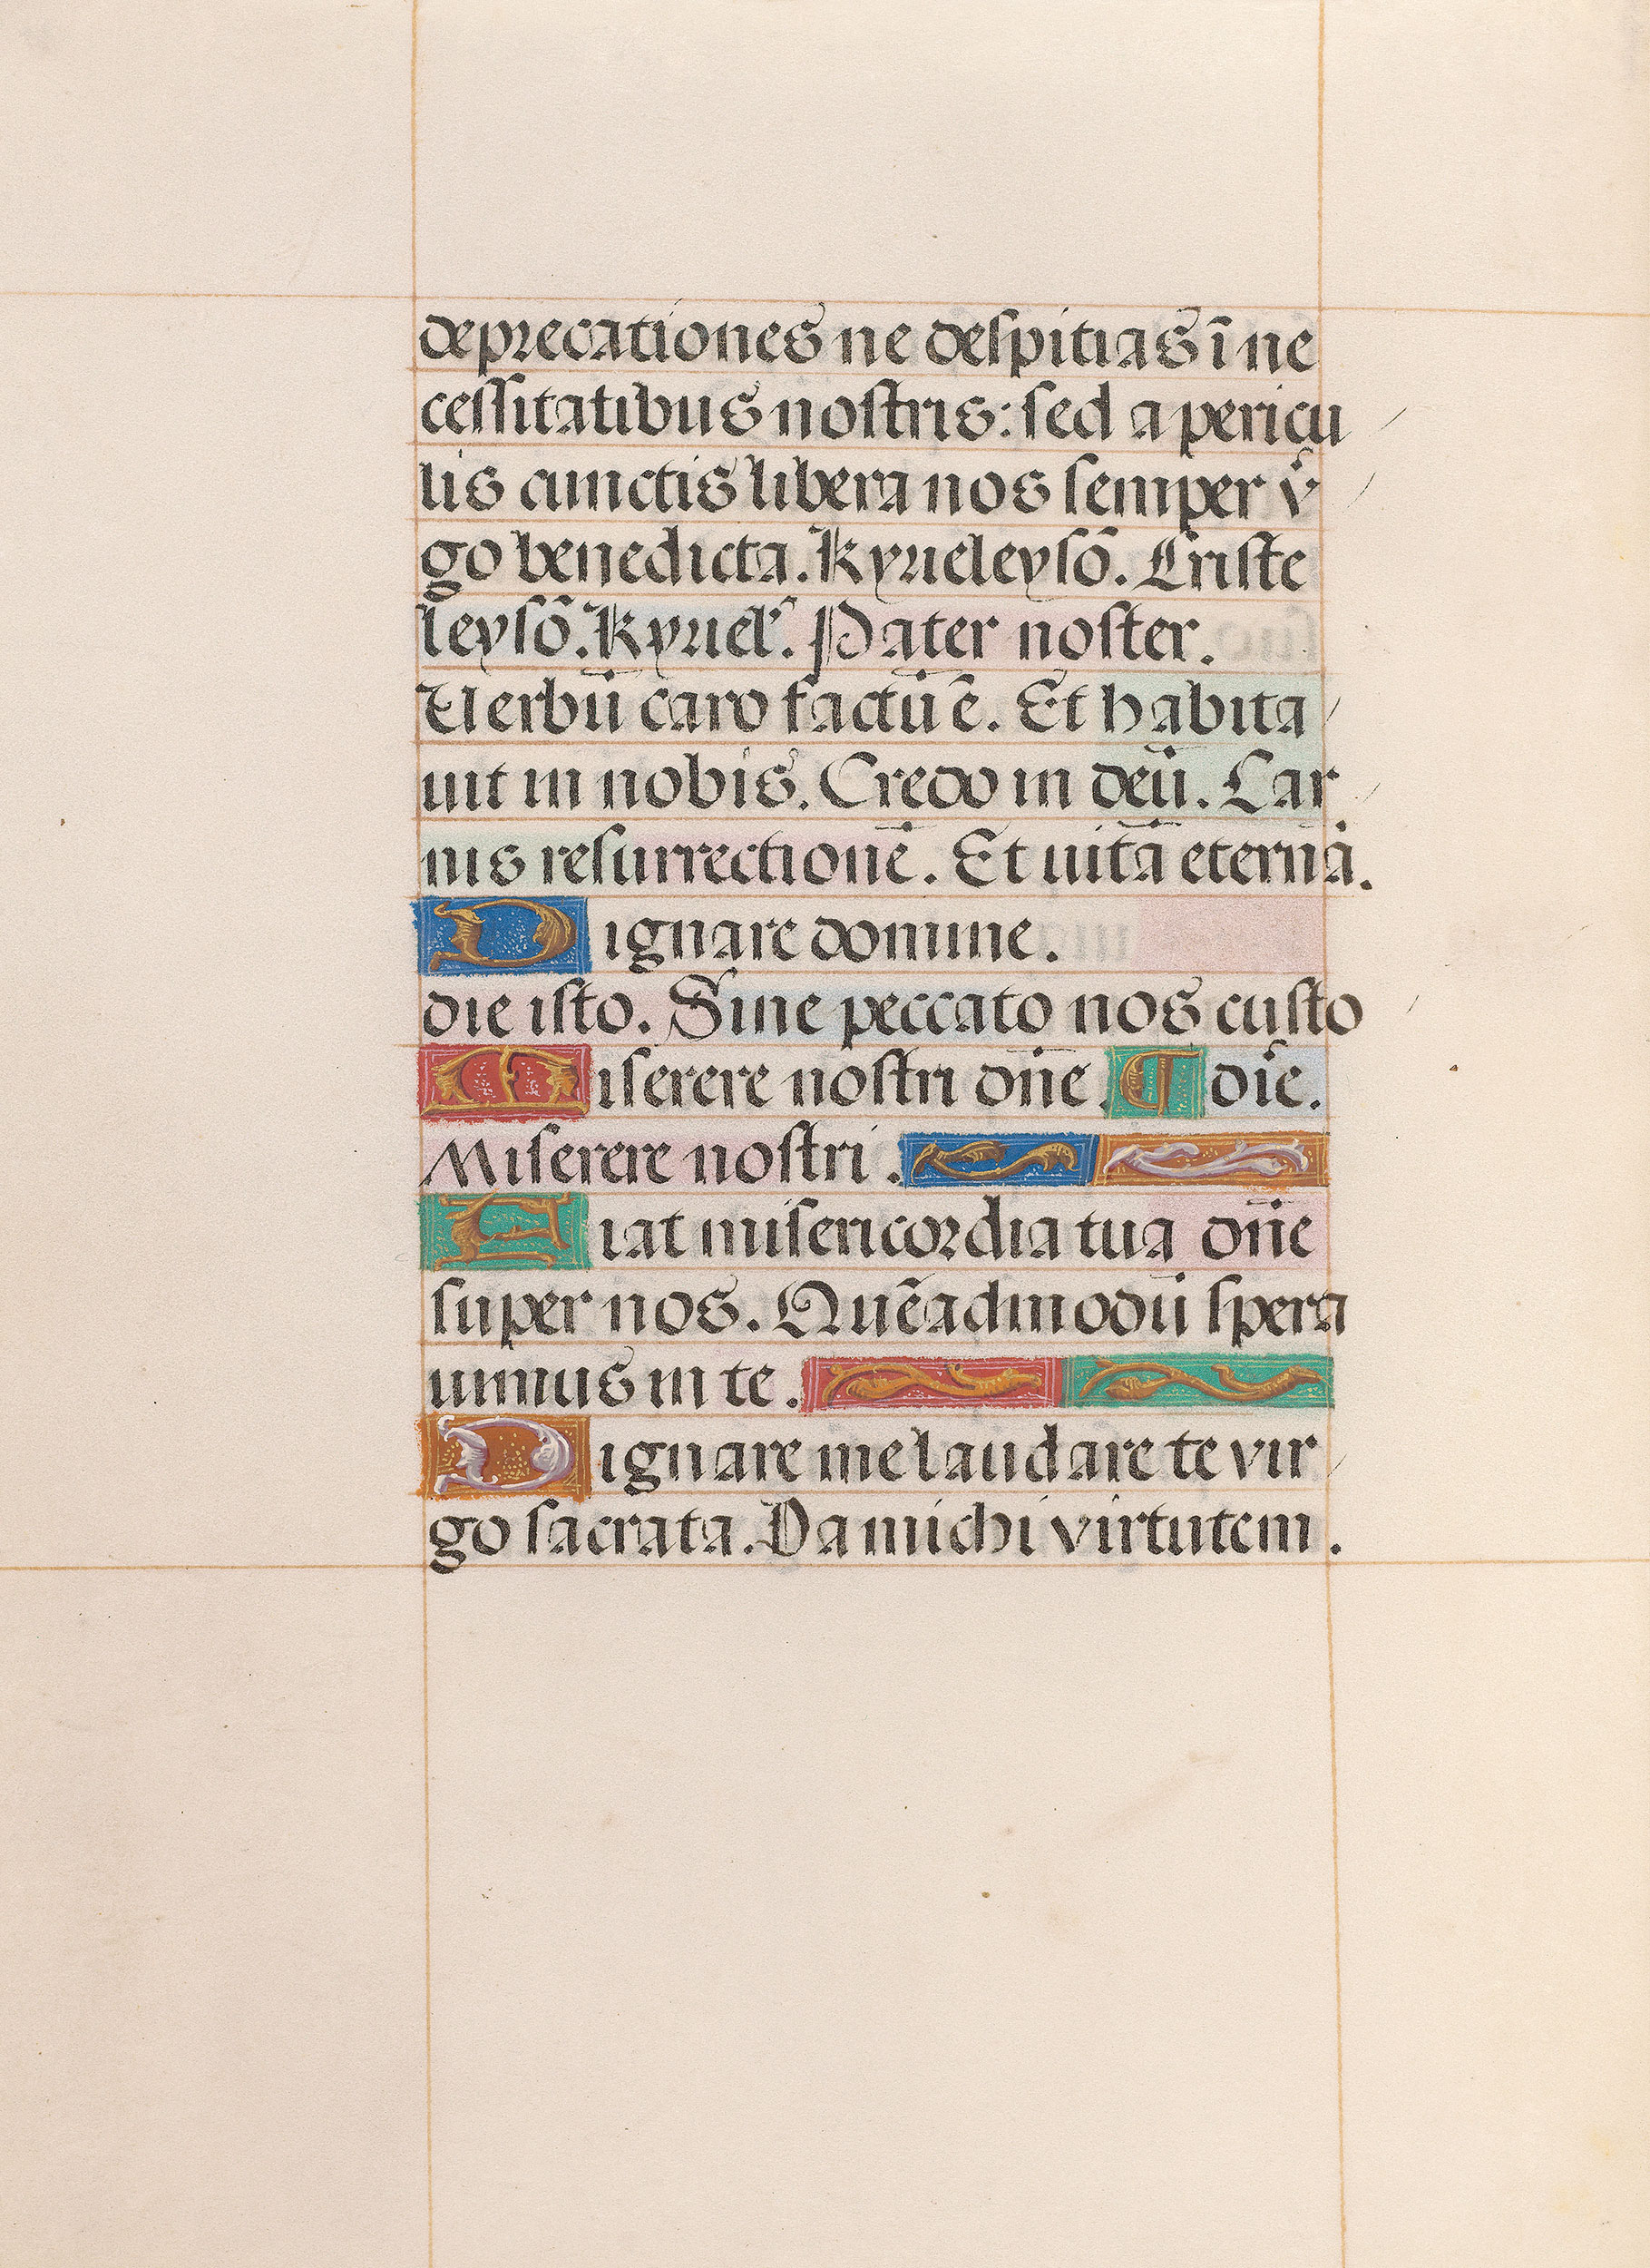 deprecationes ne despitias ī ne
cessitatibus nostris: sed a pericu
lis cunctis libera nos semper v̊
go benedicta. Kyrieleysō. Criste
leysō. Kyriel'. Pater noster.
Uerbū caro factū ē. Et habita
uit in nobis. Credo in deū. Car
nis resurrectionē. Et uitā eternā.
Dignare domine.
die isto. Sine peccato nos custo
Miserere nostri dn̄e. ¶ dir̄e.
Miserere nostri.
Fiat misericordia tua dn̄e
super nos. Quēadmodū spera
uimus in te.
Dignare me laudare te vir
go sacrata. Da michi virtutem.